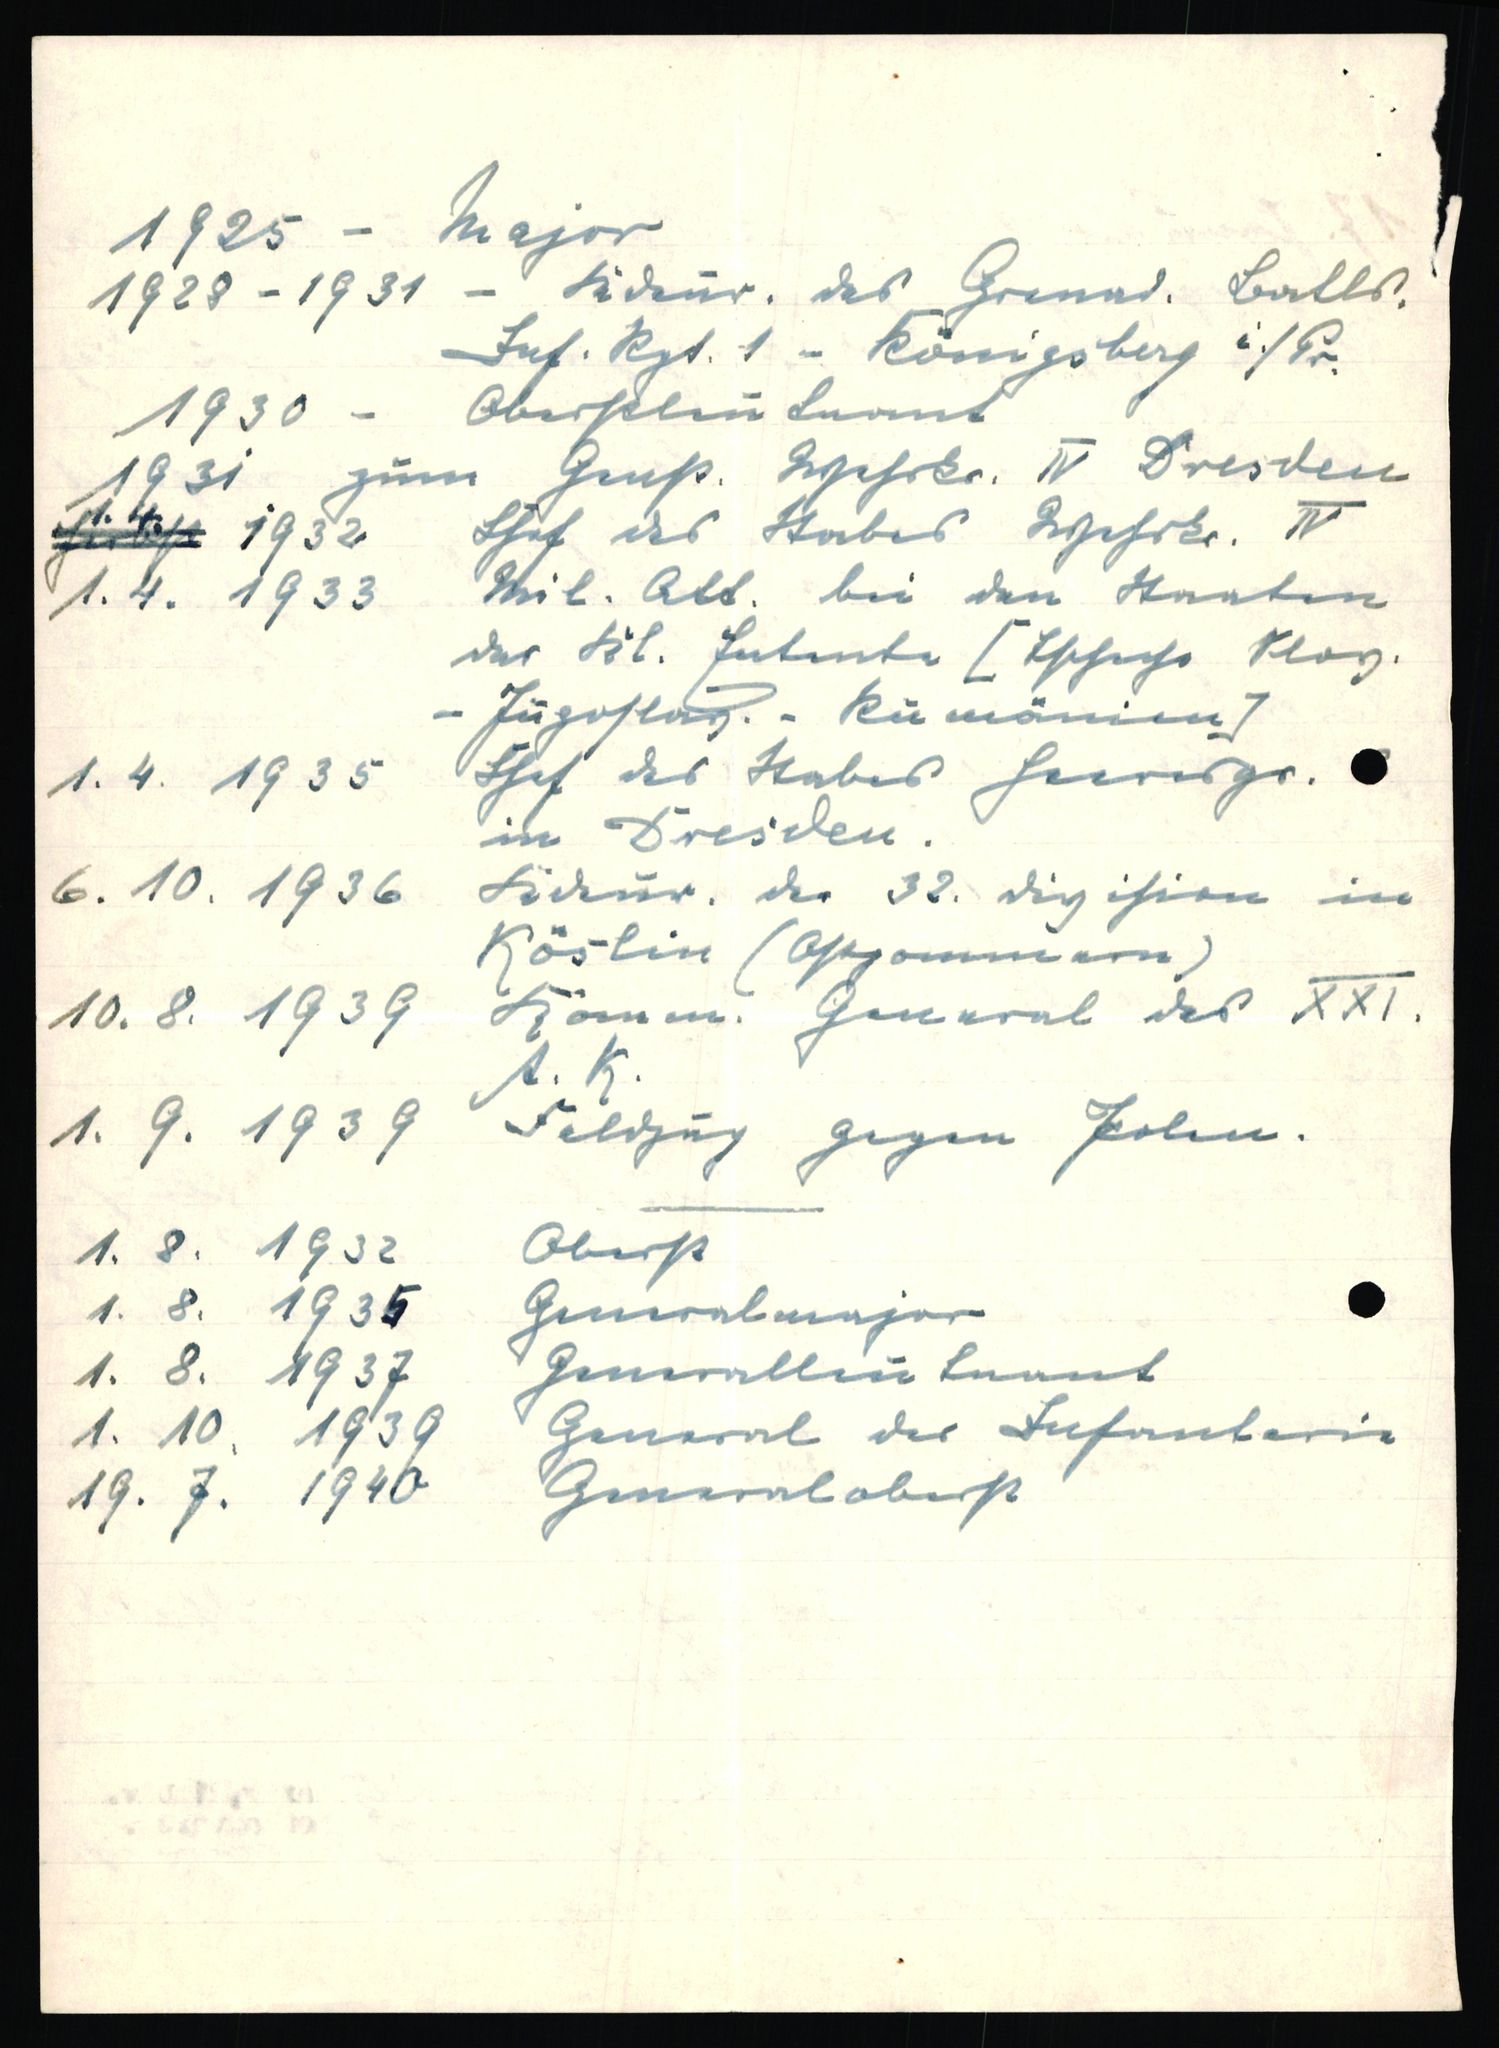 1925 - Major
1928 - 1931 - Kdeur. des Grenad. Batls.
Inf. Rgt. 1 - Königsberg i./Pr.
1930 - Oberstleutnant
1931 zum Gruß. Wehrkr. IV Dresden
1.4. 1932 Chef des Stabes Wehrkr. IV
1. 4. 1933 Mil. Att. bei den Staaten
der Kl. Entente [Tschecho Slov.
- Jugoslav. - Rumänien]
1. 4. 1935 Chef des Stabes Heeresgr.
in Dresden.
6. 10. 1936 Kdeur. der 32. Division in
Köslin (Ostpommern)
10. 8. 1939 Komm. General des XXI.
A. K.
1. 9. 1939 Feldzug gegen Polen.
1. 8. 1932 Oberst
1. 8. 1935 Generalmajor
1. 8. 1937 Generalleutnant
1. 10. 1939 General der Infanterie
19. 7. 1940 Generaloberst